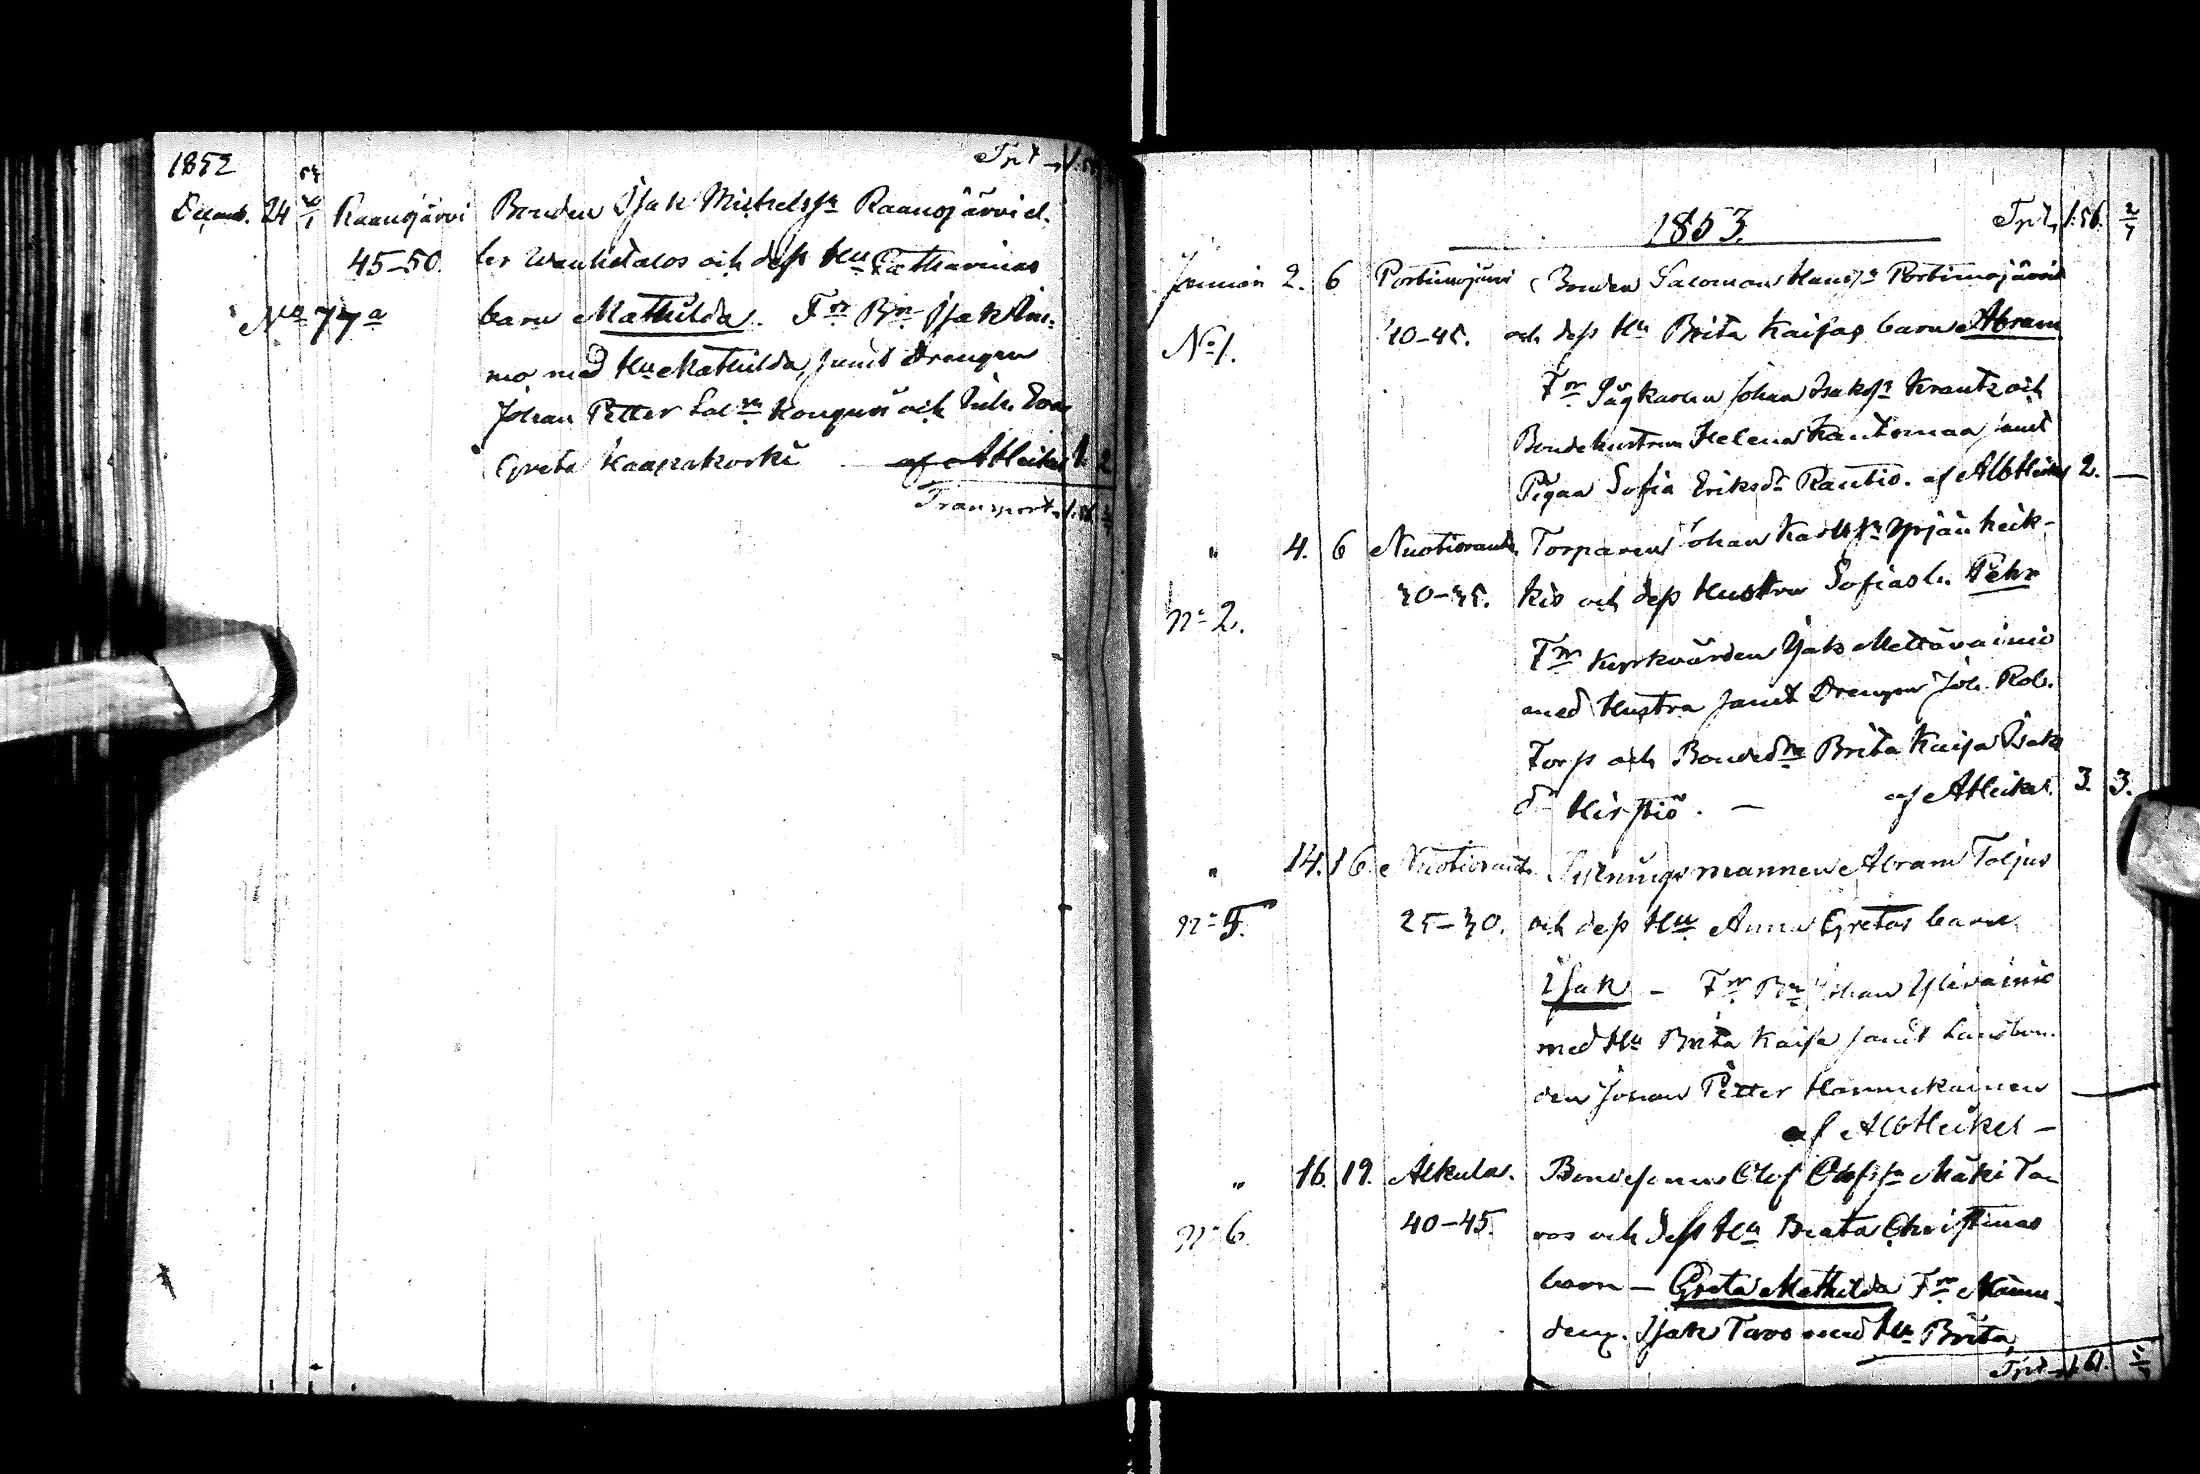 1852 Trpt 1:5
Decemb. 24 Raanojärvi Bonden Isak Michelss:n Raanojärvi el.
45–50. ler Wanhatalos och dess Hu Catharinas
No 77a barn Mathilda. Fr Bn Isak
mo med Hu Mathilda, samt Drengen
Johan Petter Sal:sn Kongus och Pih. Eva
Greta Kaapakoski af AHeikel 1. 2
Transport 1:56
1853. Trpt 1:56. 2/7
Januari 2. 6 Portimojärvi Bonden Salomon Hanss:n Portimojärvi
No 1. 40–45. och dess Hu Brita Kaisas barn Abram
Fr Sågkarlen Johan Isakss:n Krantz och
Bondehustrun Helena Kantomaa samt
Pigan Sofia Eriksd:r Rautio. af AlbHeikel 2. —
" 4. 6 Nuotioranta. Torparen Johan Karlss:n Yrjänheik-
No 2. 30–35. kis och dess Hustru Sofias b. Pehr
Fr Kyrkvärden Isak Mellävainio
med Hustru samt Drengen Joh. Rob.
Torp och Bonded:r Brita Kaisa Isaks
d:r Hirstiö. — af AHeikel. 3. 3.
" 14. 16. Nuotioranta mannen Abram Toljus
No 5. 25–30. och dess Hu Anna Gretas barn
Isak – Fr Bn Johan Ylivainio
med Hu Brita Kaisa samt Landbon-
den Johan Petter Hannukainen
af AlbHeikel –
" 16. 19. Alkula. Bondesonen Olof Olofss:n Mäki Ta-
No 6 40–45. vos och dess Hu Beata Christinas
barn – Greta Mathilda Fr
Isak Tavo med Hu Brita
Trpt 1:61. 5/7